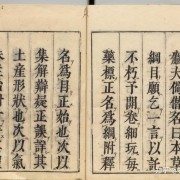 麤大備僭名曰本草
綱目願乞一言以託
不朽予開卷細玩每
藥標正名為綱附釋
名為目正始也次以
集解辯疑正誤詳其
土產形狀也次以氣